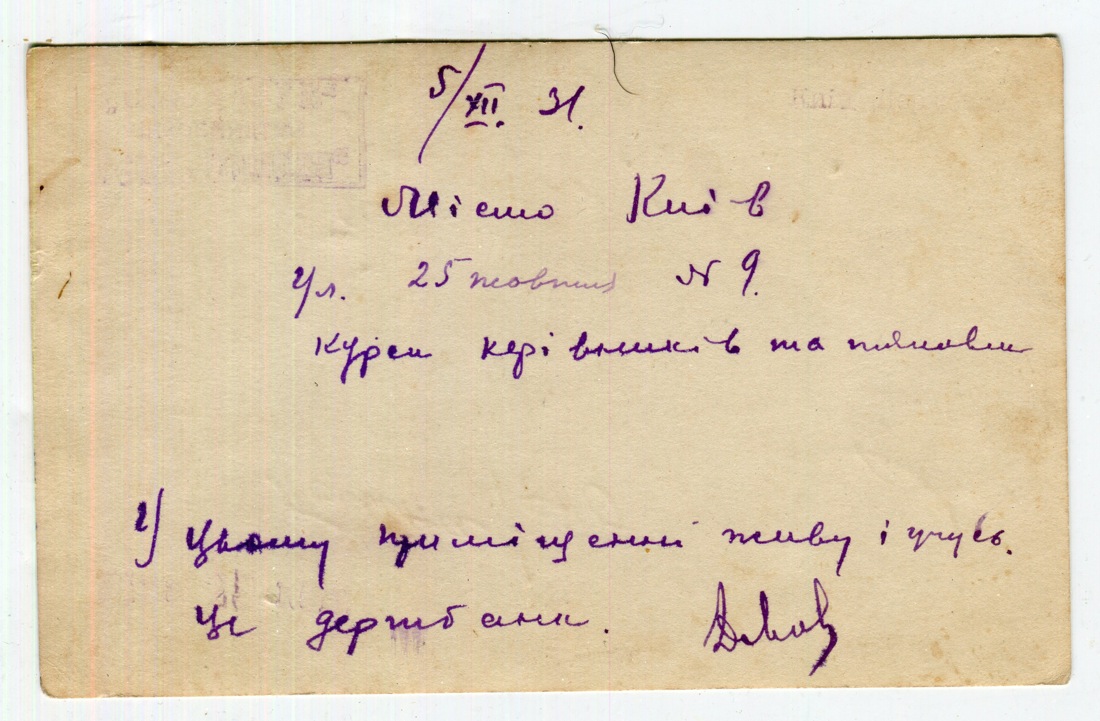 5/XII. 31.
Місто Київ
Ул. 25 жовтня № 9.
Курси керівників та
У цьому приміщенні живу і учусь.
Це держбанк.